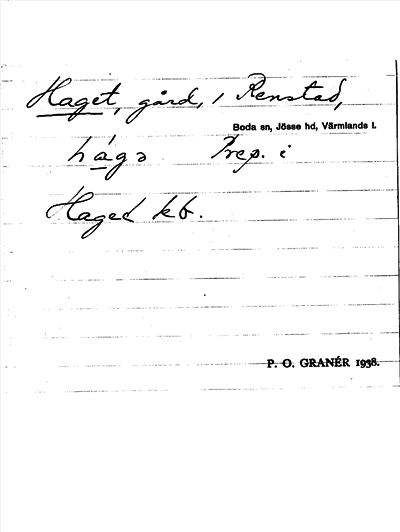 Haget, gård, i Renstad,
Boda sn, Jösse hd, Värmlands l.
hágə Prep. i
Haget kb.
P. O. GRANÉR 1938.